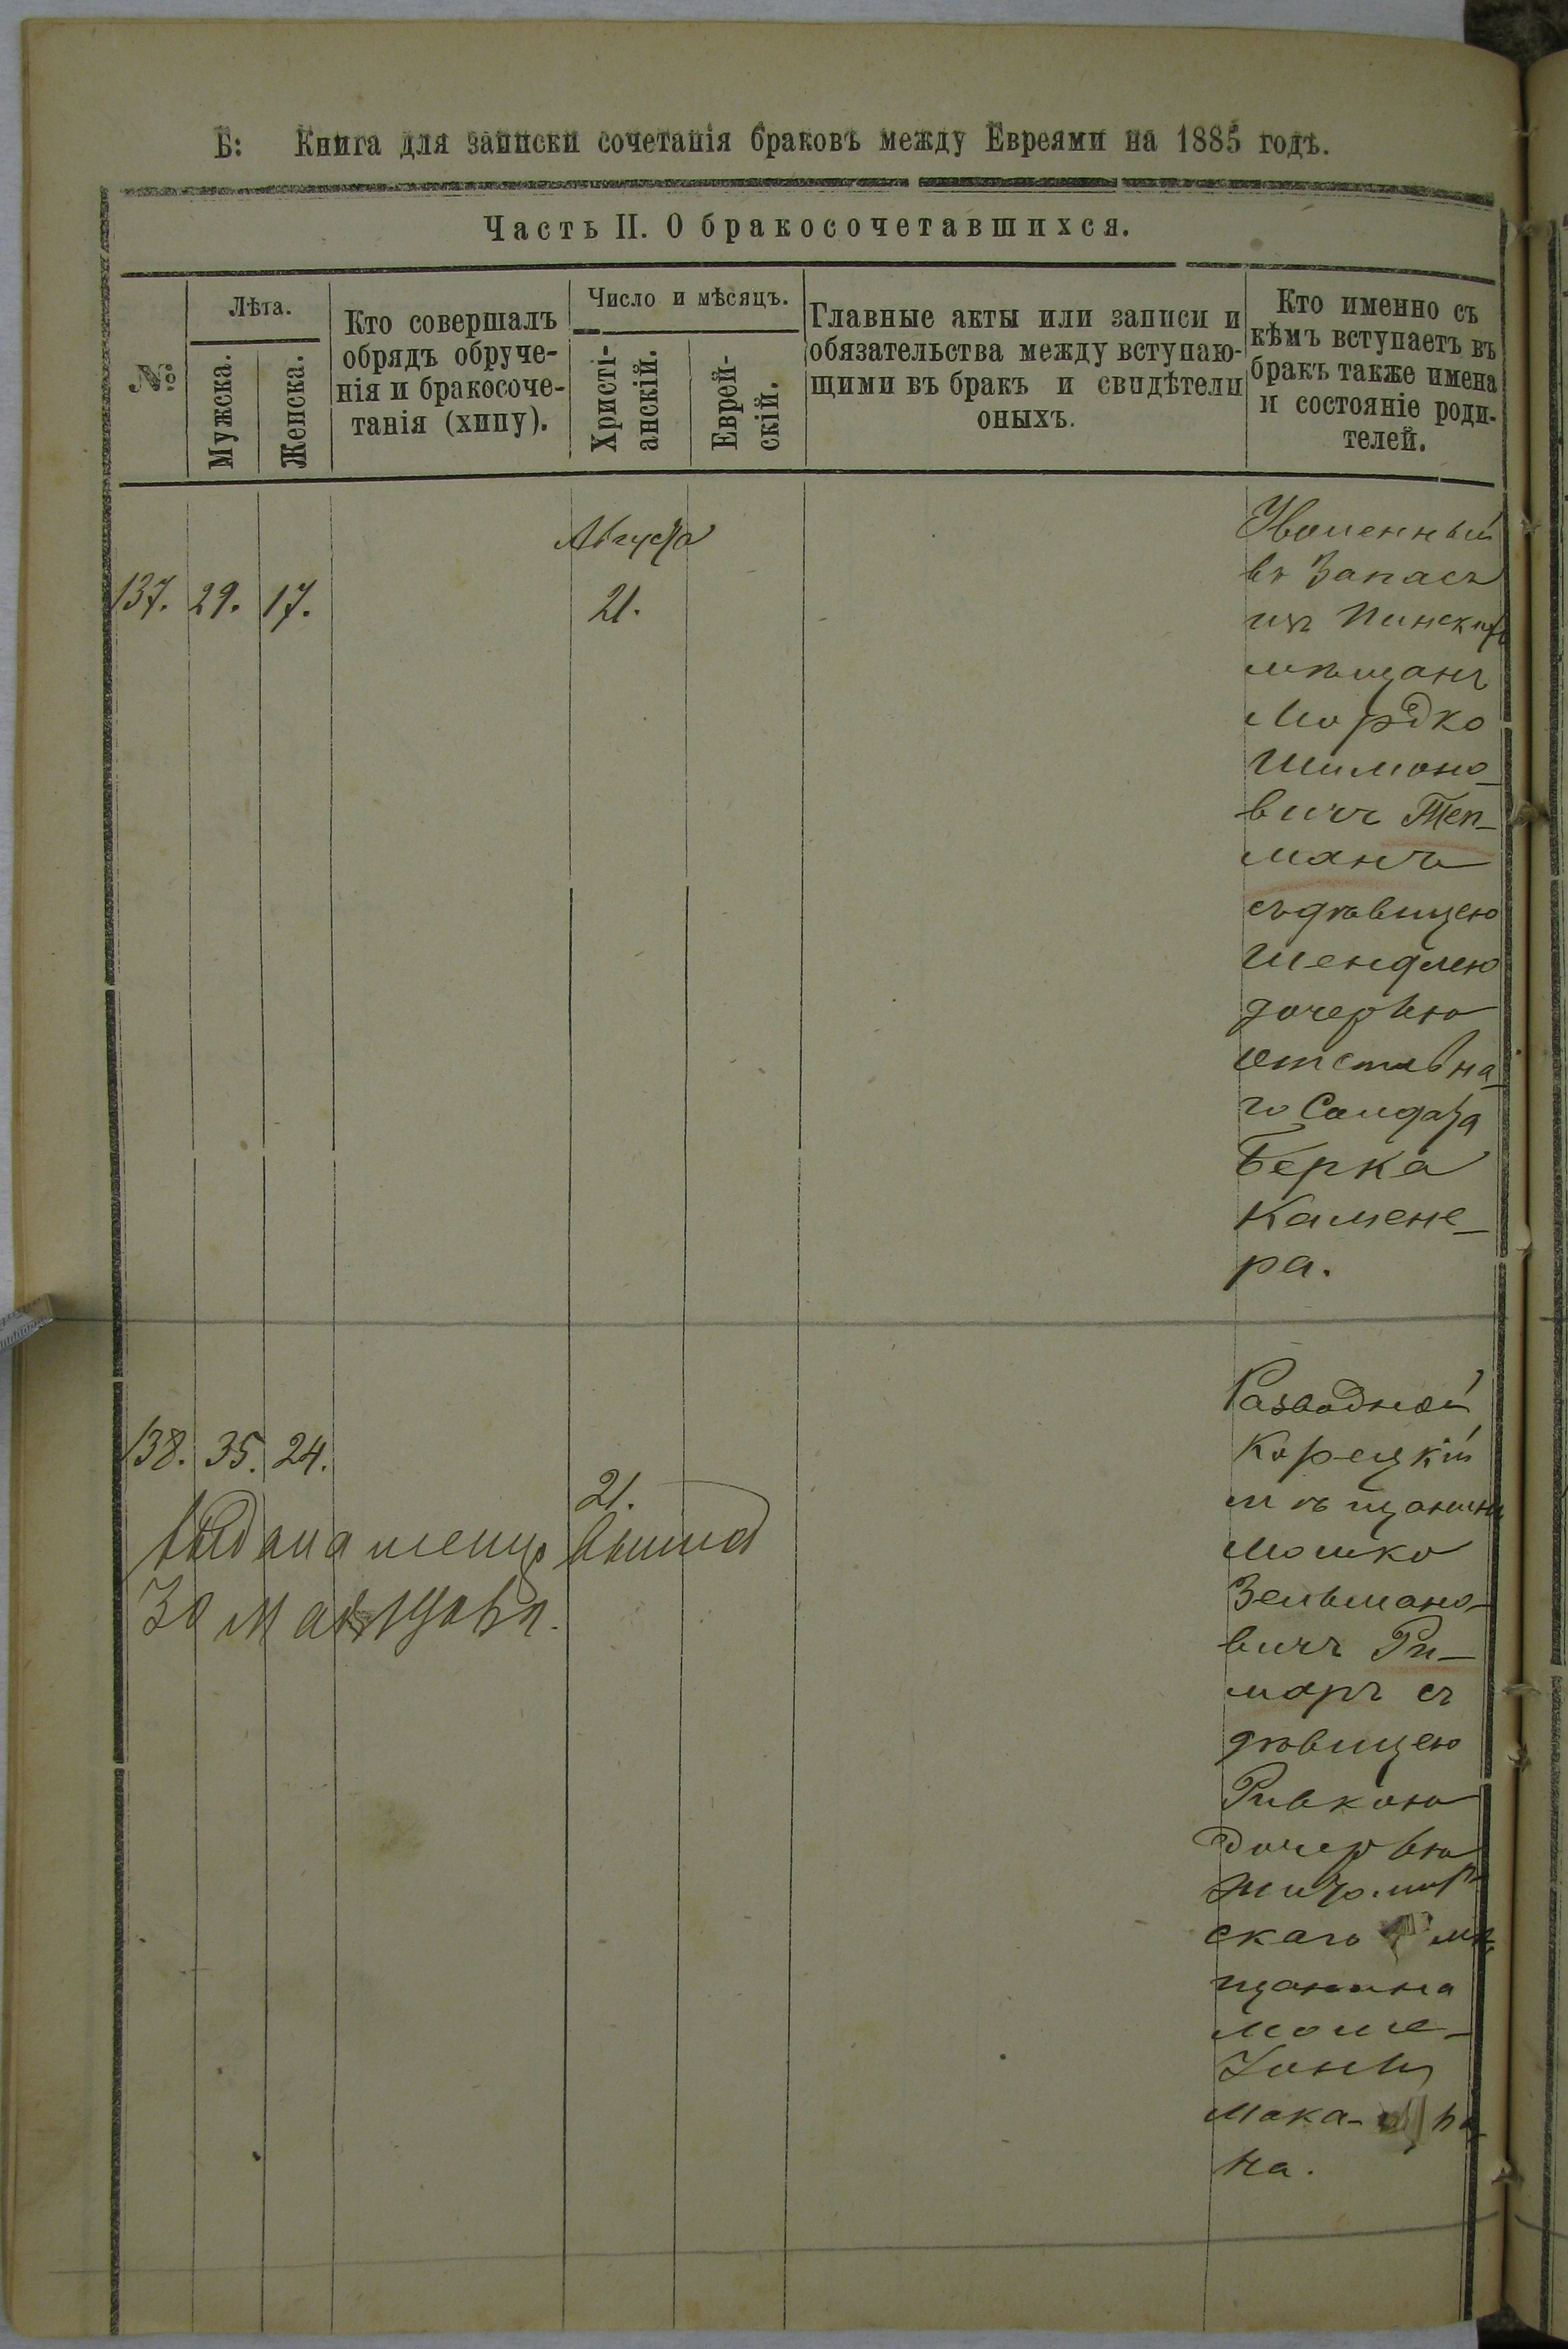 Б: Книга для записки сочетанія браковъ между Евреями на 1885 годъ.
Часть II. О бракосочетавшихся.
№
Лѣта.
Мужска.
Женска.
Кто совершалъ
обрядъ обруче-
нія и бракосоче-
танія (хипу).
Число и мѣсяцъ.
Христі-
анскій.
Еврей-
скій.
Главные акты или записи и
обязательства между вступаю-
щими въ бракъ и свидѣтели
оныхъ.
Кто именно съ
кѣмъ вступаетъ въ
бракъ также имена
и состояніе роди-
телей.
Августа
137. 29. 17.
21.
Уволенный
въ Запасъ
изъ Пинскихъ
мѣщанъ
Мордко
Шимоно-
вичъ Теп-
манъ
съ дѣвицею
Шендлею
дочерью
отставна-
го Солдата
Берка
Камене-
ра.
138. 35. 24.
21.
Разводной
Корецкій
мѣщанинъ
Мошко
Зельмано-
вичъ Ри-
маръ съ
дѣвицею
Ривкою
дочерью
Житомир-
скаго мѣ-
щанина
Моше-
Іоны
Мака-
на.